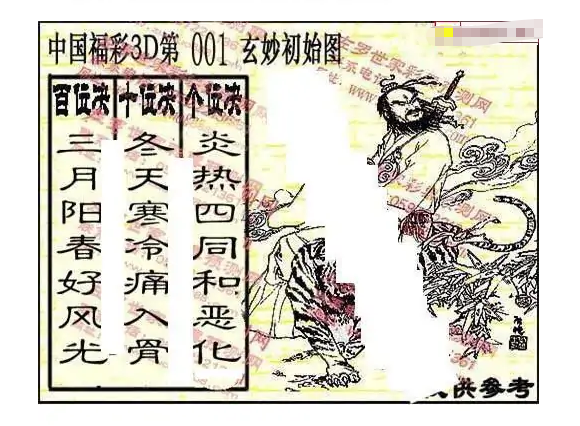 中国福彩3D第 001 玄妙初始图
百位决 十位决 个位决
三月阳春好风光
冬天寒冷痛入骨
炎热四同和恶化
供参考